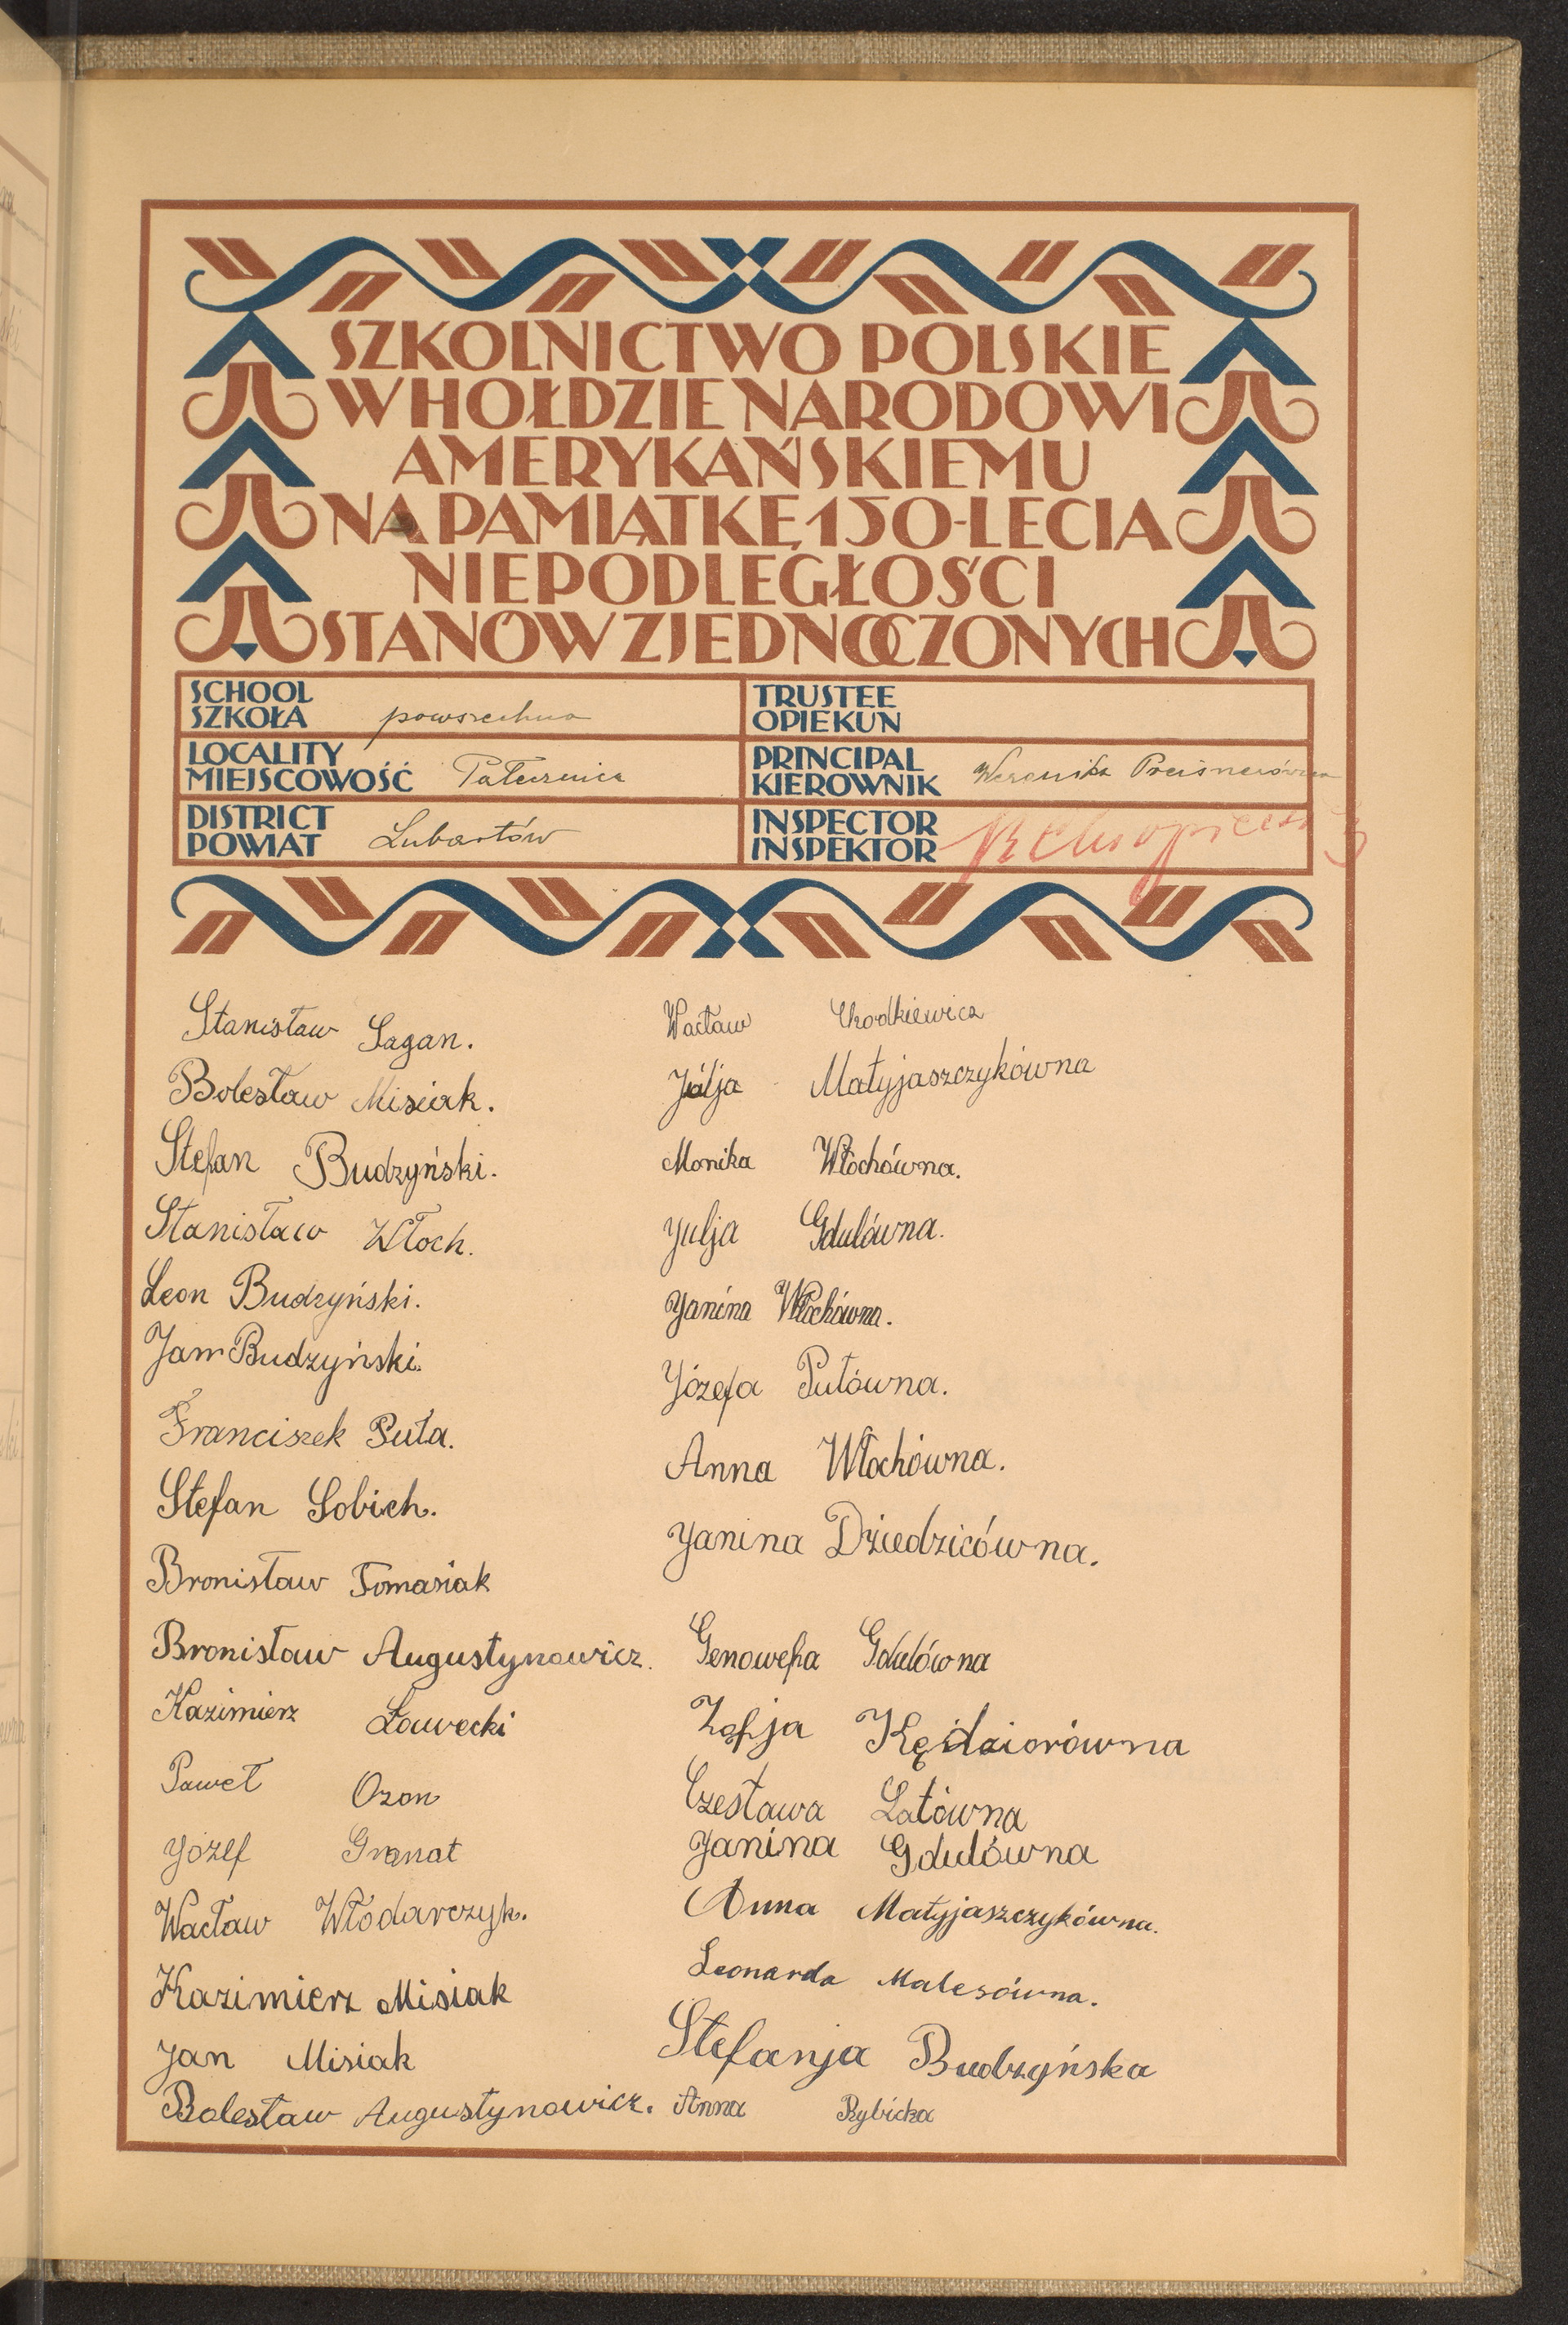 SZKOLNICTWO POLSKIE
W HOŁDZIE NARODOWI
AMERYKAŃSKIEMU
NA PAMIĄTKĘ 150-LECIA
NIEPODLEGŁOŚCI
STANÓW ZJEDNOCZONYCH
SCHOOL
SZKOŁA powszechna
LOCALITY
MIEJSCOWOŚĆ Pałecznica
DISTRICT
POWIAT Lubartów
TRUSTEE
OPIEKUN
PRINCIPAL
KIEROWNIK Weronika Preisnerówna
INSPECTOR
INSPEKTOR
Stanisław Sagan.
Bolesław Misiak.
Stefan Budzyński.
Stanisław Włoch.
Leon Budzyński.
Jan Budzyński.
Franciszek Puła.
Stefan Sobich.
Bronisław Tomasiak
Bronisław Augustynowicz.
Kazimierz Ławecki
Paweł Ozon
Józef Granat
Wacław Włodarczyk.
Kazimierz Misiak
Jan Misiak
Bolesław Augustynowicz.
Wacław Chodkiewicz
Julja Matyjaszczykówna
Monika Włochówna.
Julja Gdulówna.
Janina Włochówna.
Józefa Pułówna.
Anna Włochówna.
Janina Dziedzicówna.
Genowefa Gdulówna
Zofja Kędziorówna
Czesława Latówna
Janina Gdulówna
Anna Matyjaszczykówna.
Leonarda Malesówna.
Stefanja Budzyńska
Anna Rybicka